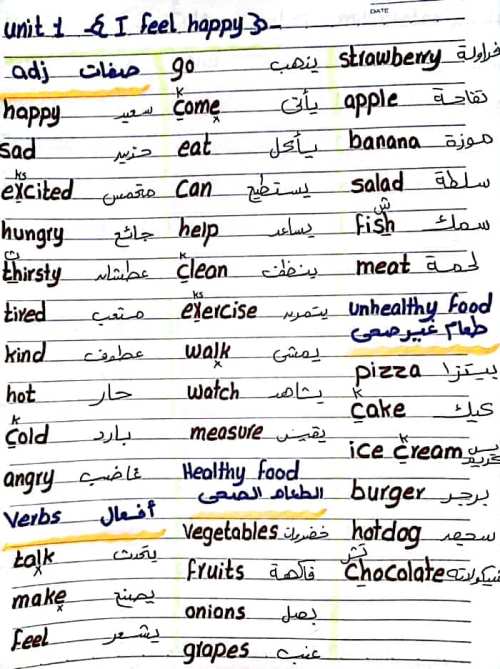 unit 1 -{ I feel happy }-
DATE
adj صفات
happy سعيد
sad حزين
ks
excited متحمس
hungry جائع
ث
thirsty عطشان
tired متعب
kind عطوف
hot حار
k
cold بارد
angry غاضب
Verbs أفعال
talk يتحدث
make يصنع
feel يشعر
go يذهب
k
come يأتى
eat يأكل
can يستطيع
help يساعد
k
clean ينظف
ks
exercise يتمرن
walk يمشى
watch يشاهد
measure يقيس
Healthy food
الطعام الصحى
vegetables خضروات
fruits فاكهة
onions بصل
grapes عنب
strawberry فراولة
apple تفاحة
banana موزة
salad سلطة
ش
fish سمك
meat لحمة
unhealthy food
طعام غير صحى
pizza بيتزا
k
cake كيك
k
ice cream آيس كريم
burger برجر
hotdog
تش
chocolate شيكولاته